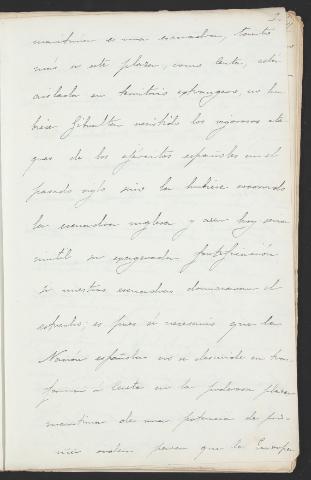 maritima es una escuadra, tanto
más si esta plaza, como Ceuta, está
aislada en territorio extrangero, no hu
biese Gibraltar resistido los vigorosos ata
ques de los ejércitos españoles en el
pasado siglo sino la hubiese socorrido
la escuadra inglesa y aun hoy sería
inutil su exagerada fortificación
si nuestras escuadras dominaran el
estrecho; es pues si necesario que la
Nación española no se descuide en tras
formar á Ceuta en la poderosa plaza
maritima de una potencia de pri
mer orden para que la Europa